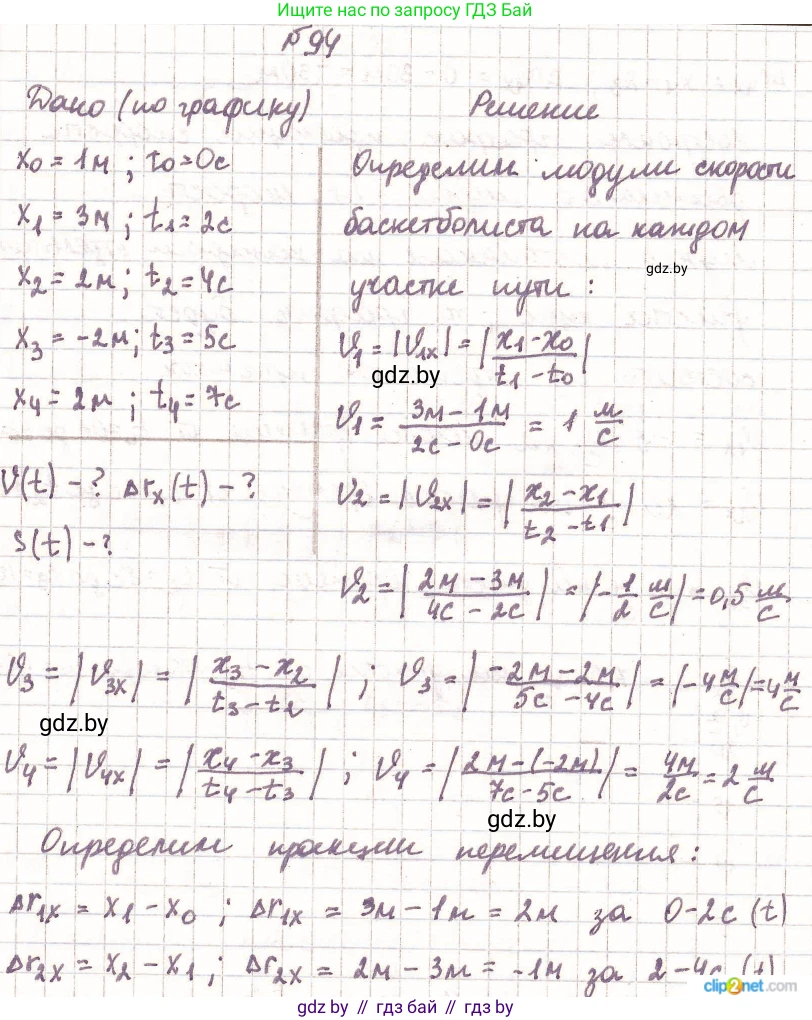 Ищите нас по запросу ГДЗ Бай
№94
Дано (по графику)
Решение
x0 = 1м ; t0 = 0с
x1 = 3м ; t1 = 2с
x2 = 2м ; t2 = 4с
x3 = -2м ; t3 = 5с
x4 = 2м ; t4 = 7с
V(t) - ? Δrx(t) - ?
s(t) - ?
Определим модули скорости
баскетболиста на каждом
gdz.by
участке пути :
V1 = |V1x| = |(x1-x0)/(t1-t0)|
gdz.by
V1 = (3м - 1м)/(2с - 0с) = 1 м/с
V2 = |V2x| = |(x2-x1)/(t2-t1)|
V2 = |(2м - 3м)/(4с - 2с)| = |-1/2 м/с| = 0,5 м/с
V3 = |V3x| = |(x3-x2)/(t3-t2)| ; V3 = |(-2м-2м)/(5с-4с)| = |-4 м/с| = 4 м/с
gdz.by
V4 = |V4x| = |(x4-x3)/(t4-t3)| ; V4 = |(2м-(-2м))/(7с-5с)| = 4м/2с = 2 м/с
gdz.by
Определим проекции перемещения :
Δr1x = x1 - x0 ; Δr1x = 3м - 1м = 2м за 0-2с (t)
Δr2x = x2 - x1 ; Δr2x = 2м - 3м = -1м за 2-4с (t)
clip2net.com
gdz by // гдз бай // гдз by